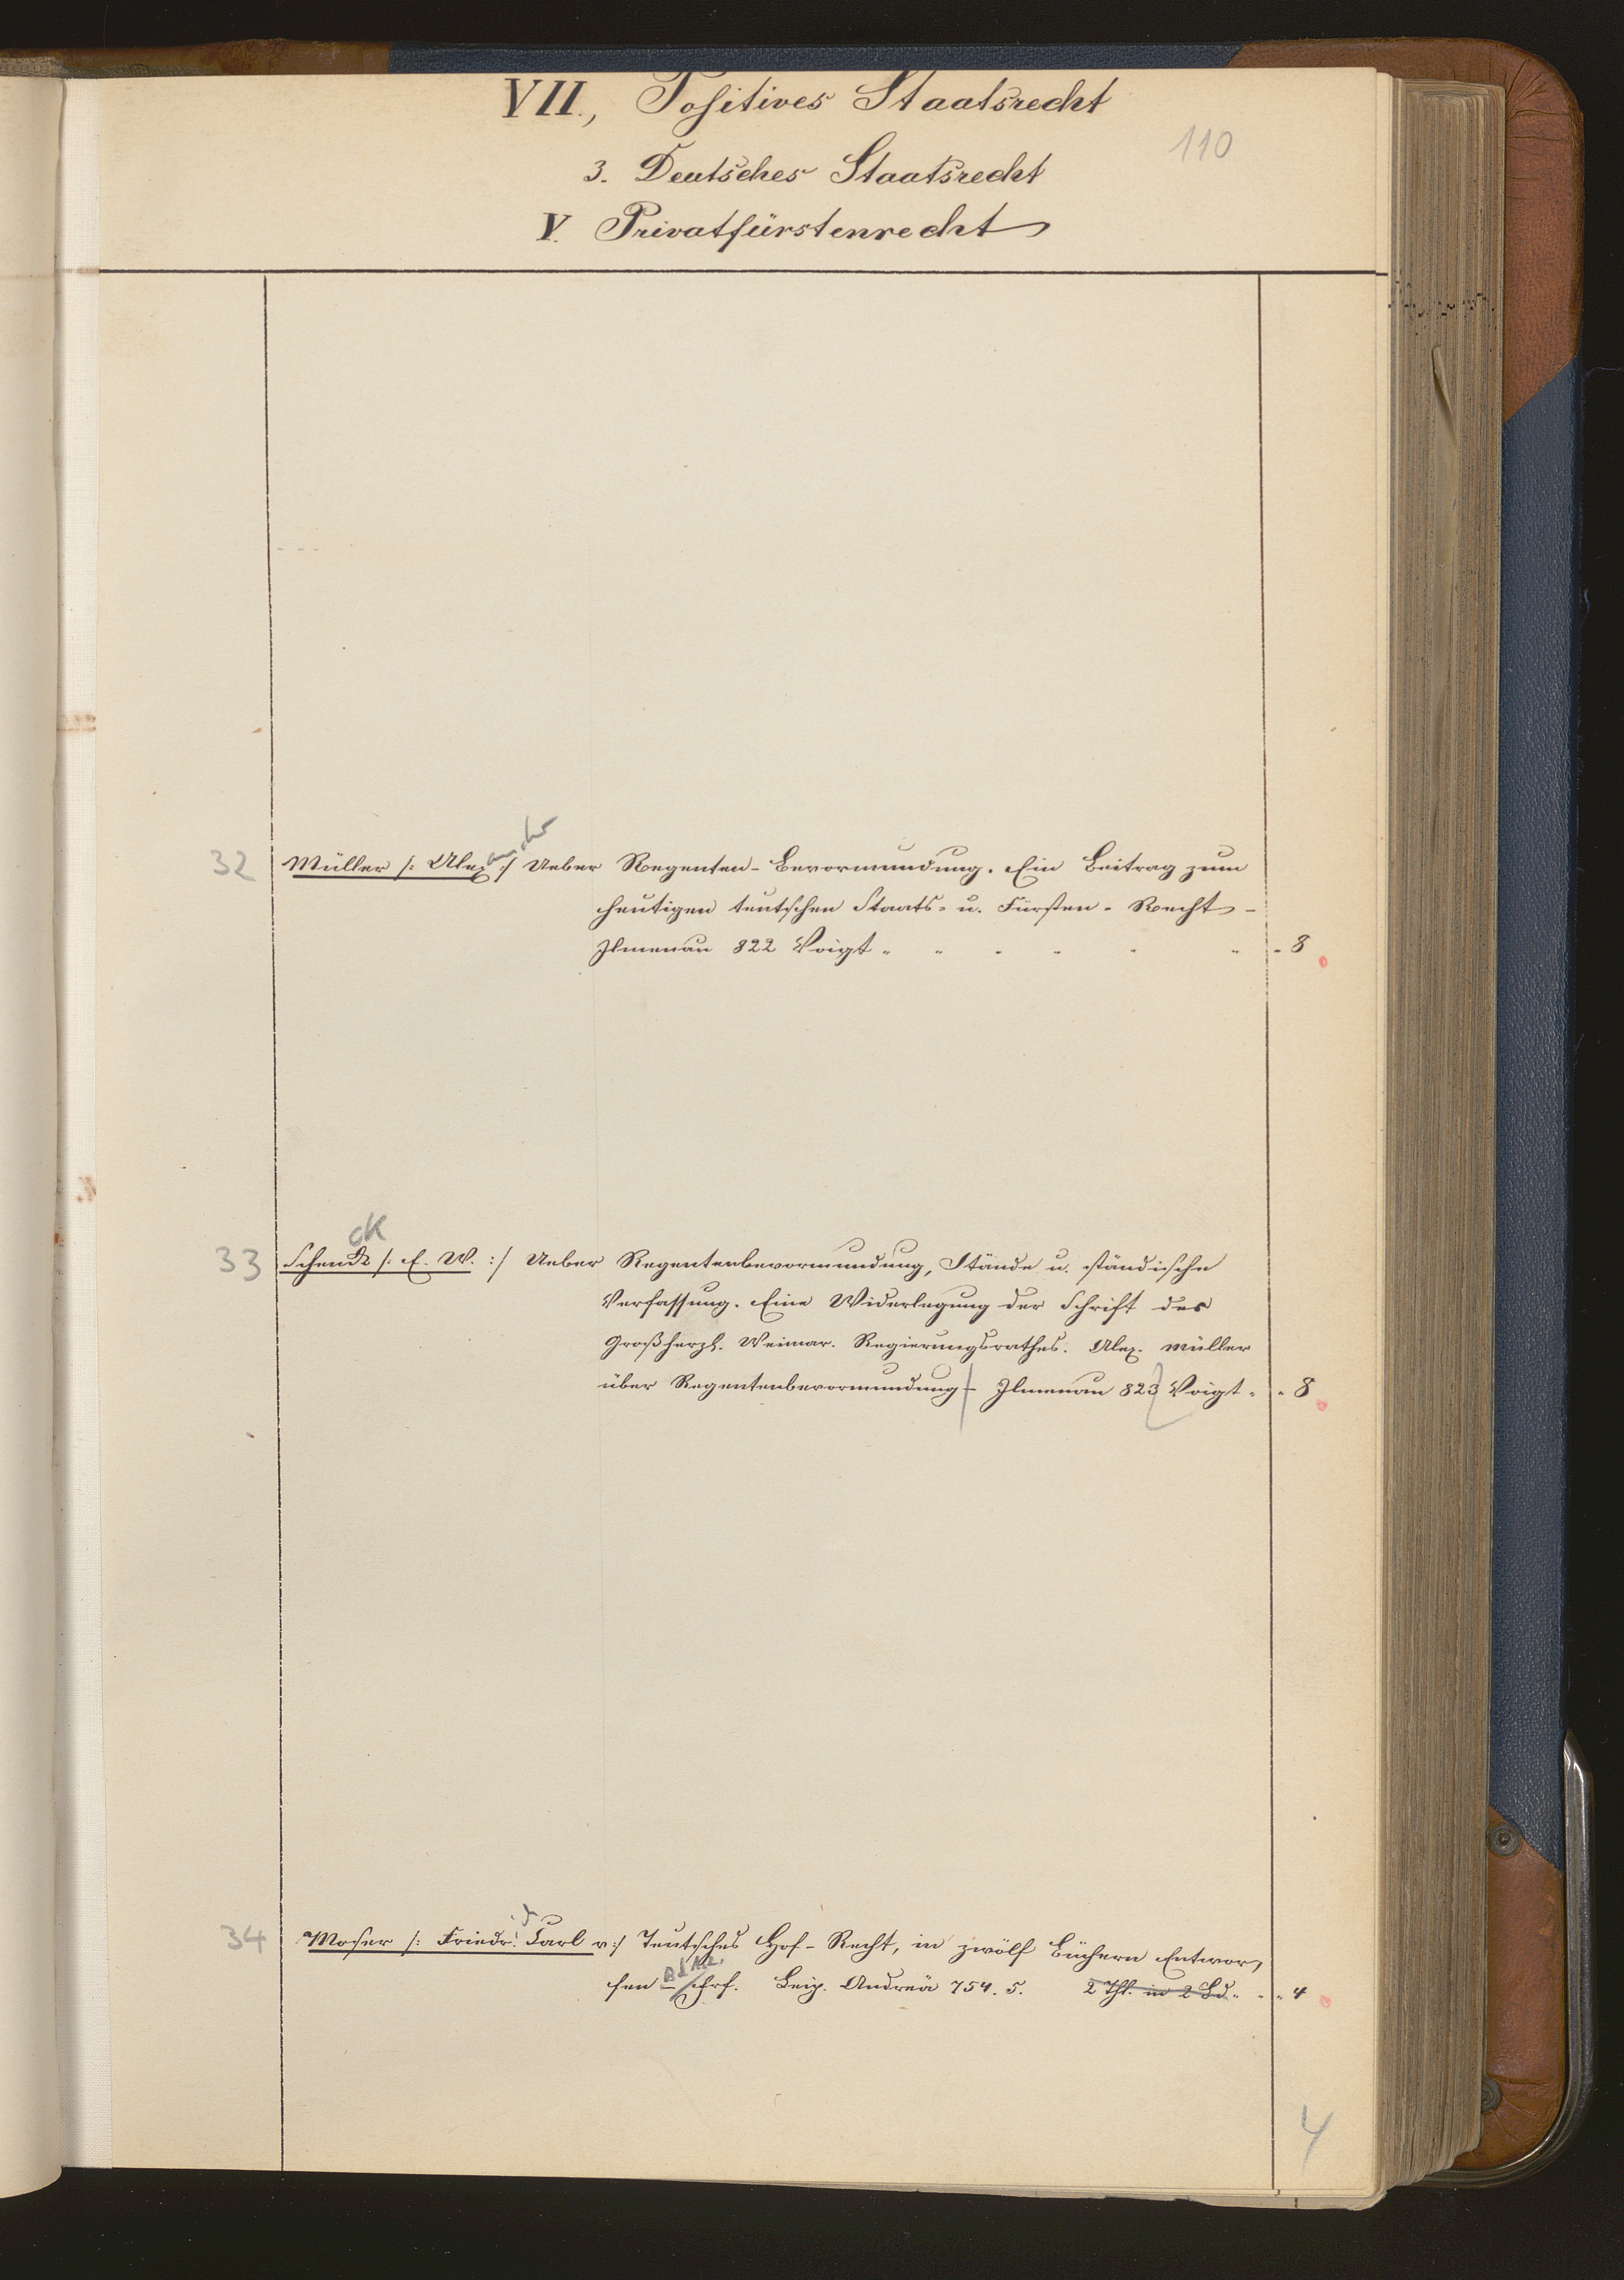 VII., Positives Staatsrecht
110
3. Deutsches Staatsrecht
V. Privatfürstenrecht
32 Müller /: Alex :/ Ueber Regenten-Bevormundung. Ein Beitrag zum
heutigen teutschen Staats- u. Fürsten-Recht -
Ilmenau 822 Voigt - 8
ck
33 Schenk /: E. W. :/ Ueber Regentenbevormundung, Stände u. ständische
Verfassung. Eine Widerlegung der Schrift des
Großherzl. Weimar. Regierungsrathes. Alex. Müller
über Regentenbevormundung - Ilmenau 823 Voigt - 8
34 Moser /: Friedr. Carl v :/ Teutsches Hof-Recht, in zwölf Büchern Entwor,
fen Leip. Andreä 754. 5. 2 Thl. in 2 Bd. 4
4